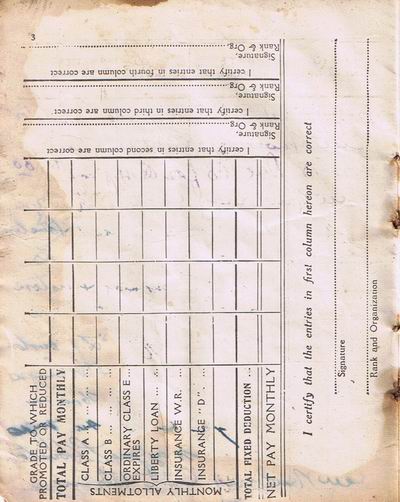 3
GRADE TO WHICH
PROMOTED OR REDUCED
TOTAL PAY MONTHLY
MONTHLY ALLOTMENTS
CLASS A ...
CLASS B ...
ORDINARY CLASS E...
EXPIRES
LIBERTY LOAN ...
INSURANCE W.R. ...
INSURANCE "D". ...
TOTAL FIXED DEDUCTION ...
NET PAY MONTHLY
I certify that entries in second column are correct
Signature,
Rank & Org.
I certify that entries in third column are correct
Signature,
Rank & Org.
I certify that entries in fourth column are correct
Signature,
Rank & Org.
I certify that the entries in first column hereon are correct
Signature
Rank and Organization